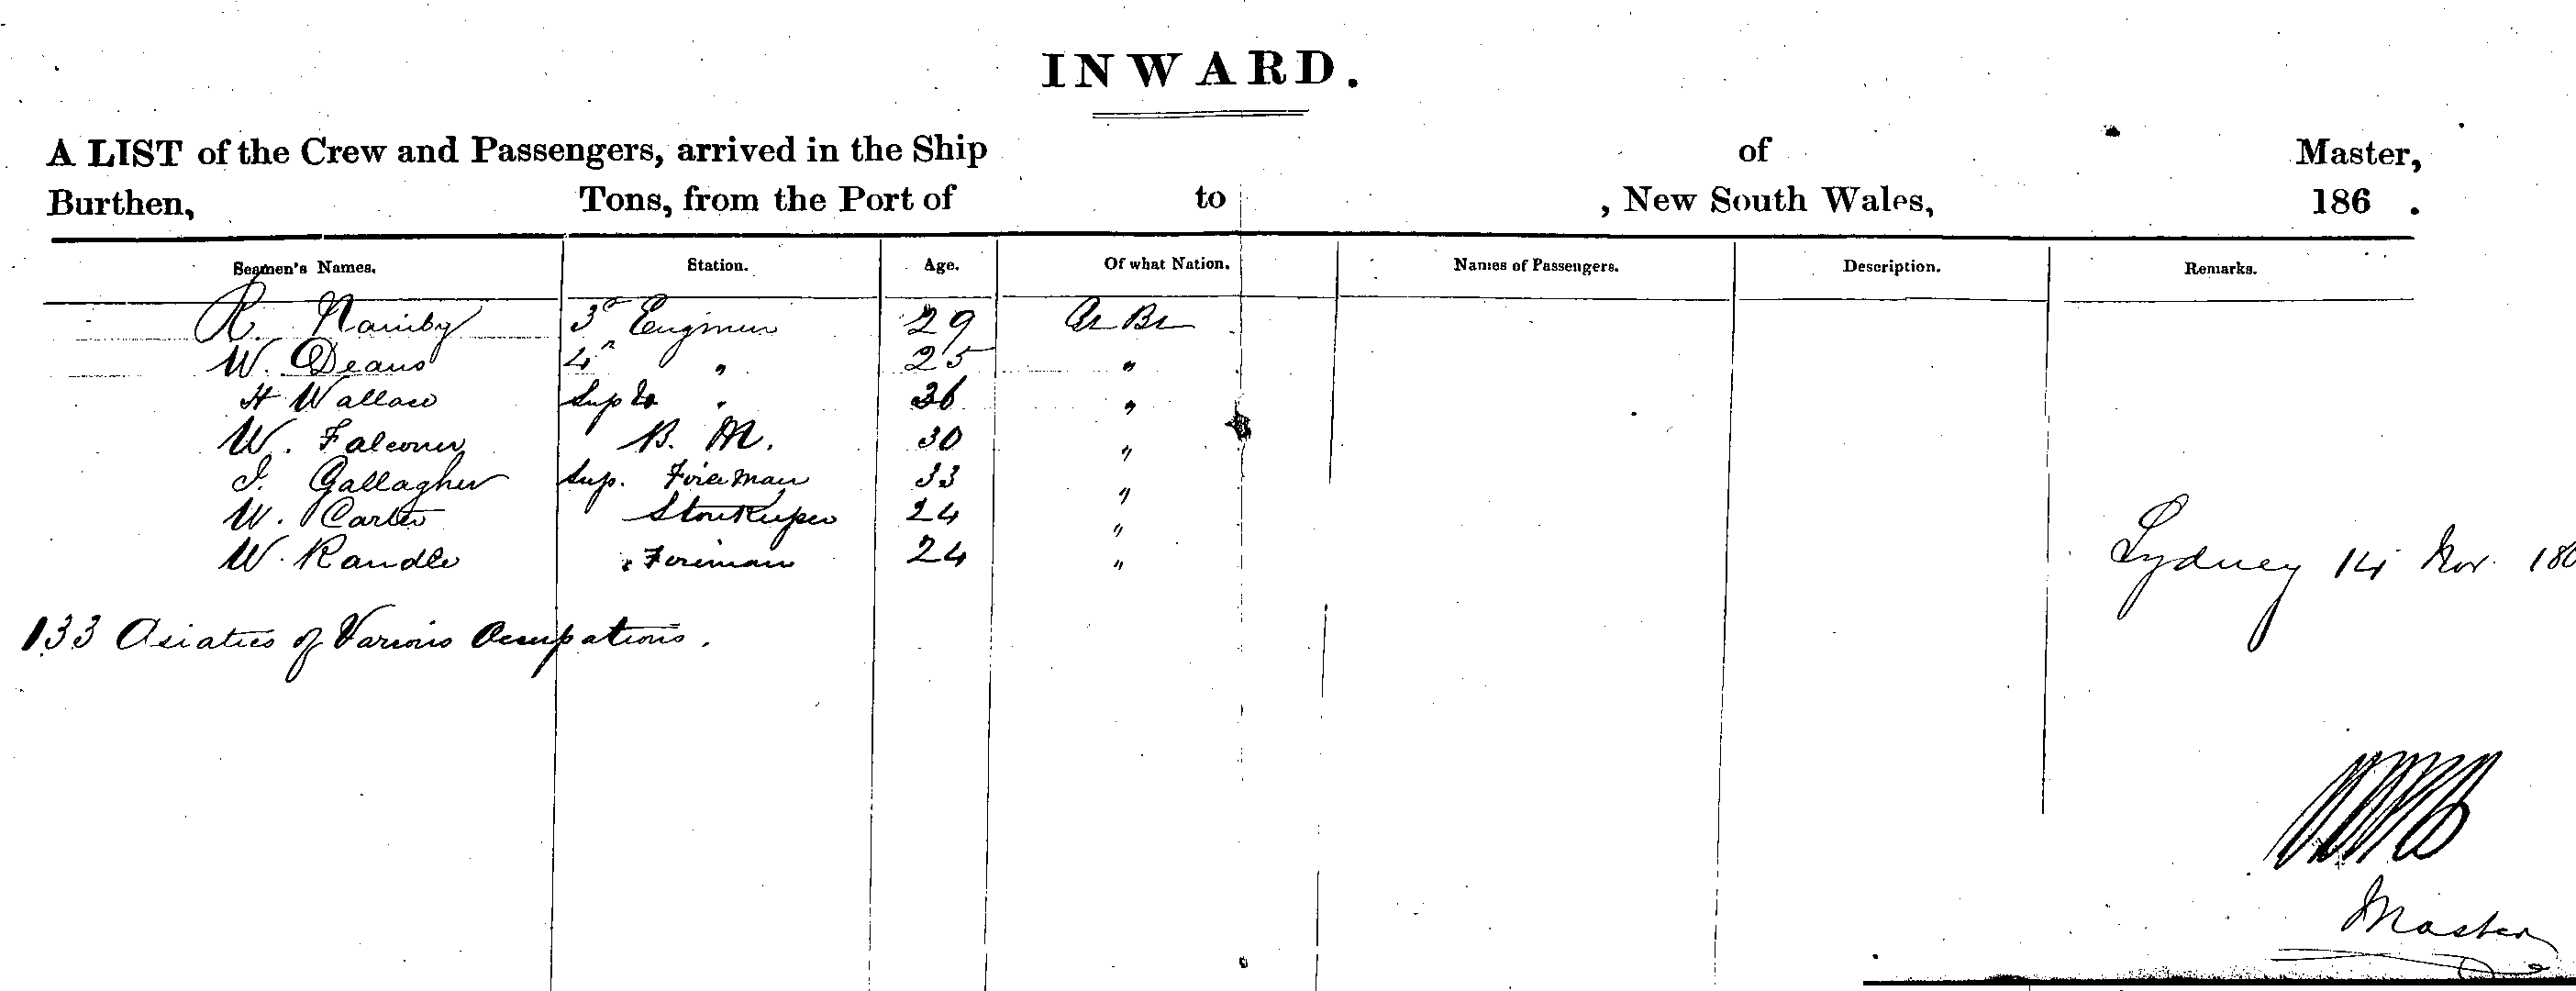 INWARD.
A LIST of the Crew and Passengers, arrived in the Ship of Master,
Burthen, Tons, from the Port of to , New South Wales, 186 .
Seamen's Names. Station. Age. Of what Nation. Names of Passengers. Description. Remarks.
R. 3d Engineer 29 Gr Br
W. Deans 4th " 25 "
H Wallace Sup " 36 "
W. Falconer B. M. 30 "
J. Gallagher Sup. Fireman 33 "
W. Carter Storekeeper 24 "
W. Randle " Fireman 24 "
Sydney 14 Nov. 186
133 Asiatics of Various Occupations.
Master